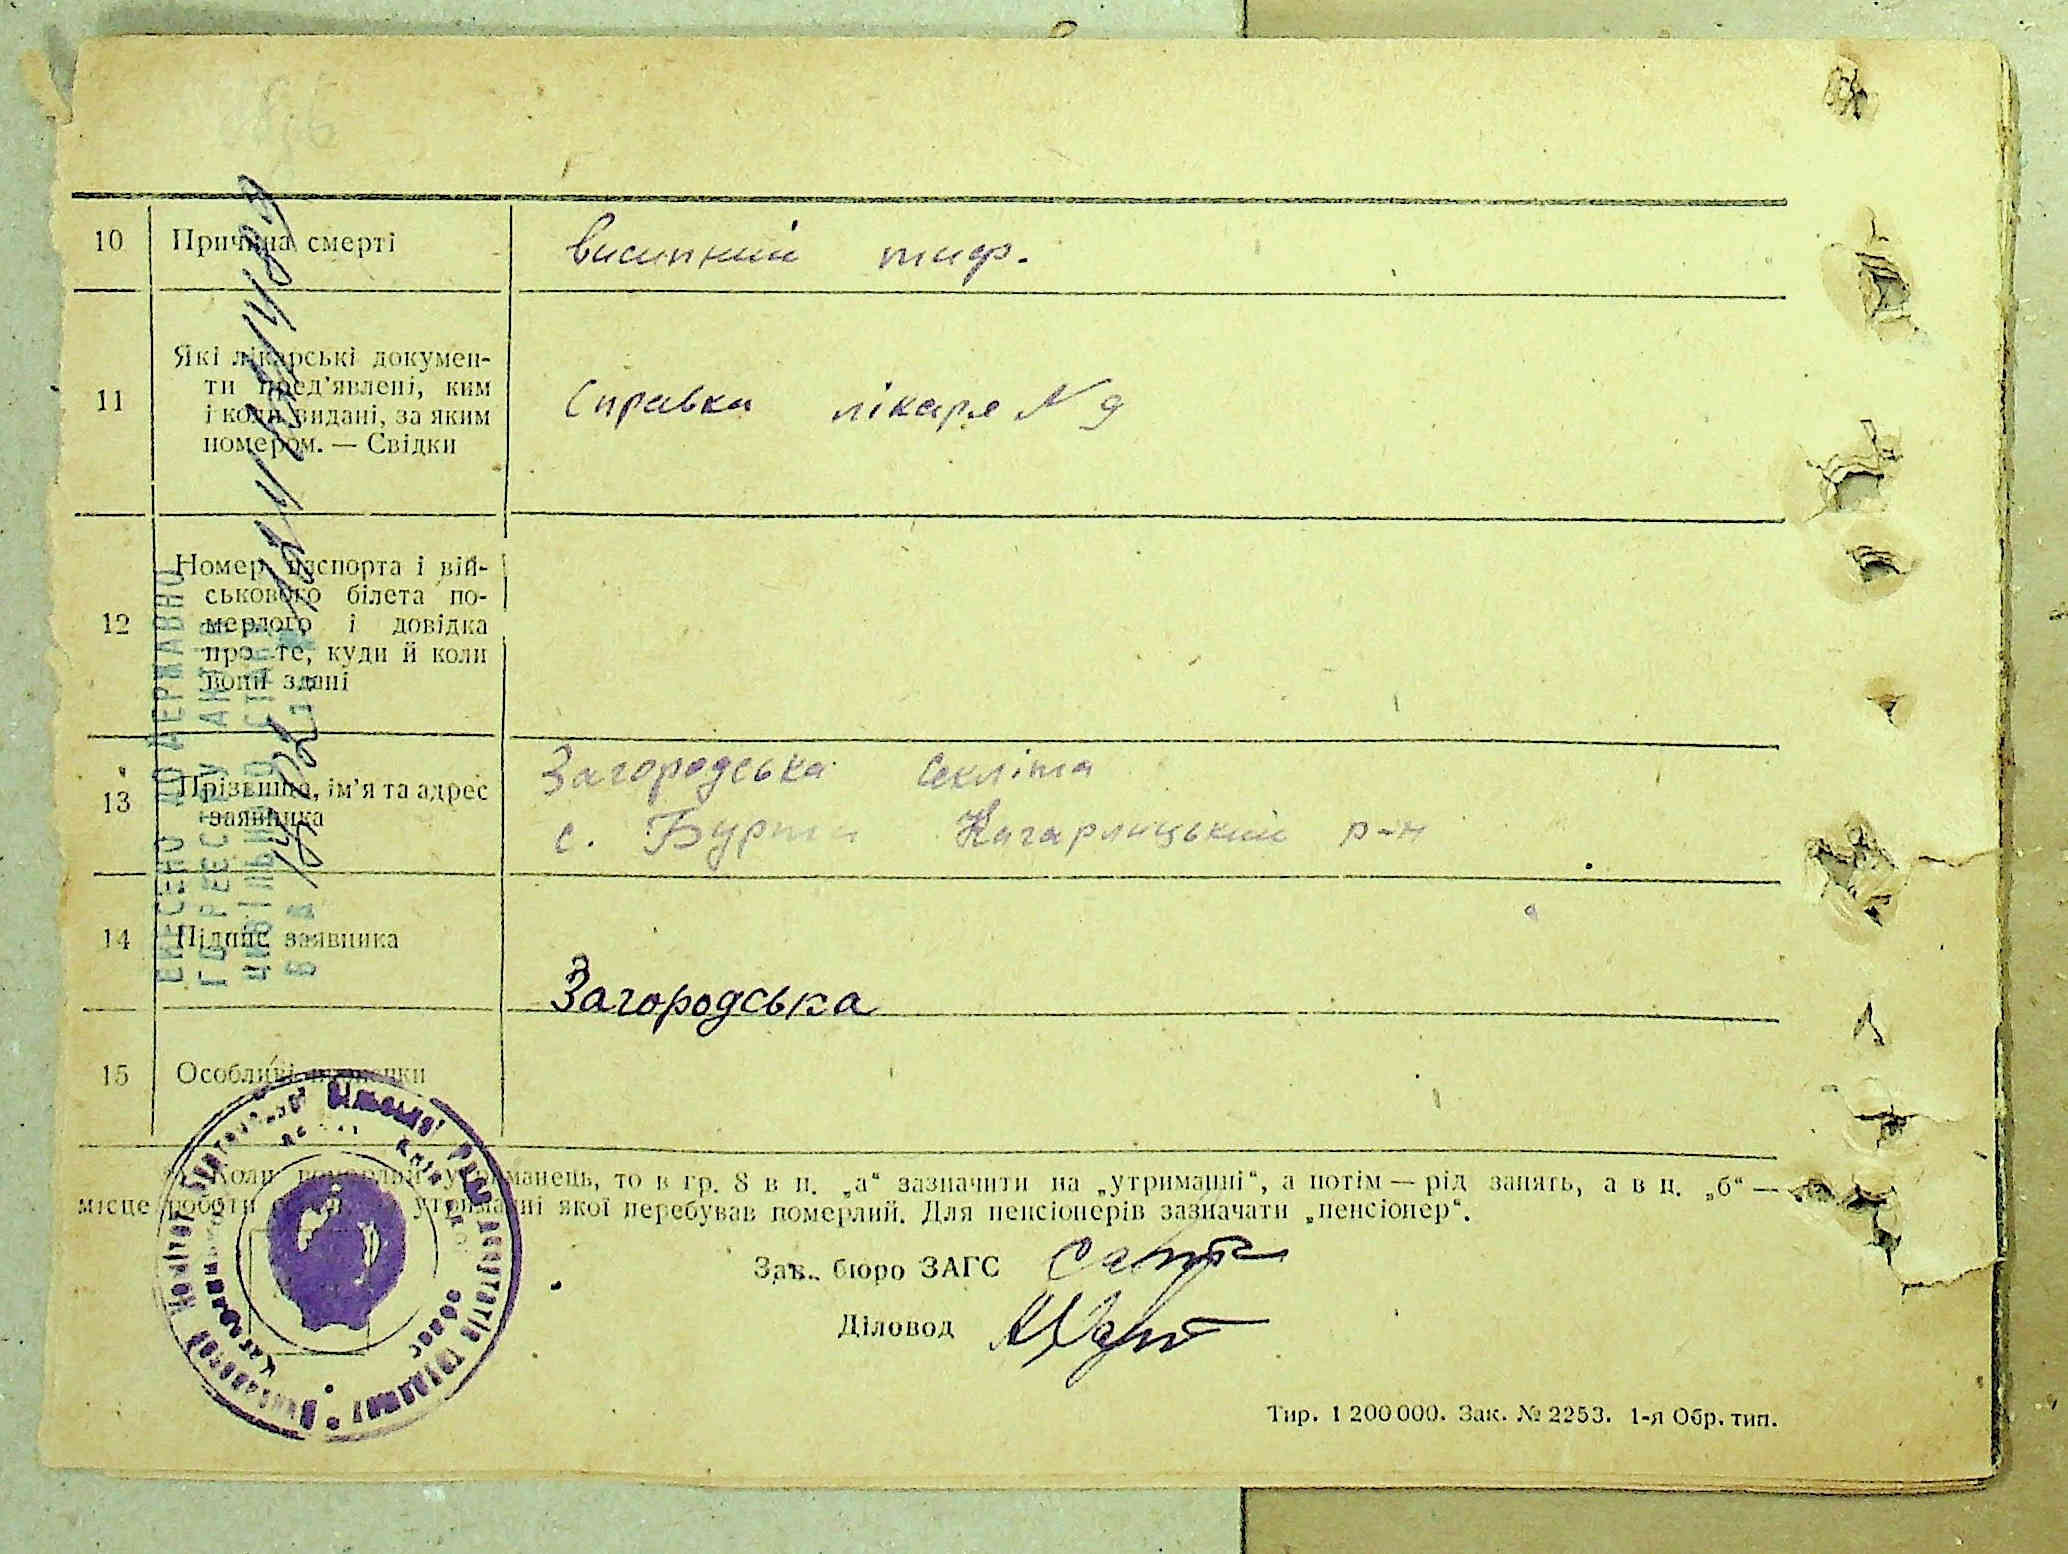 10 Причина смерті висипний тиф.
11 Які лікарські докумен-
ти пред'явлені, ким
і коли видані, за яким
номером. — Свідки
Справка лікаря N 9
12 Номер паспорта і вій-
ськового білета по-
мерлого і довідка
про те, куди й коли
вони здані
13 Прізвище, ім'я та адрес
заявника
Загородська Секліта
с. Бурти Кагарлицький р-н
14 Підпис заявника
Загородська
15 Особливі
Коли померлий утриманець, то в гр. 8 в п. „а“ зазначити на „утриманні“, а потім — рід занять, а в п. „б“ —
місце роботи утриманні якої перебував померлий. Для пенсіонерів зазначати „пенсіонер“.
Зав. бюро ЗАГС
Діловод
Тир. 1 200 000. Зак. № 2253. 1-я Обр. тип.
ВНЕСЕНО ДО ДЕРЖАВНО
ГО РЕЄСТРУ
ЦИВІЛЬНОГО СТАНУ